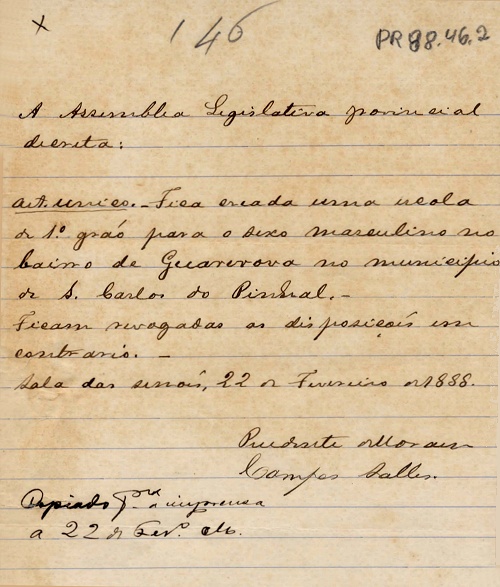 x
146
PR 88.46.2
A Assemblea Legislativa provincial
decreta:
Art. unico. - Fica creada uma escola
de 1.º gráo para o sexo masculino no
bairro de Guarerova no municipio
de S. Carlos do Pinhal. -
Ficam revogadas as disposições em
contrario. -
Sala das sessoẽs, 22 de Fevereiro de 1888.
Prudente de Moraes
Campos Salles.
Copiado p.ra a imprensa
a 22 de Fev.º